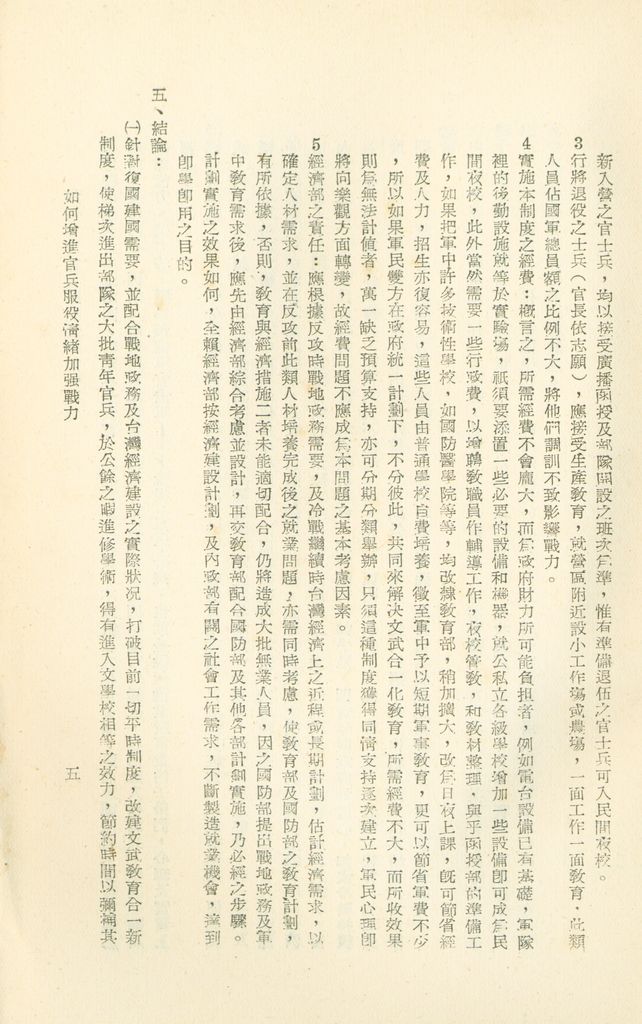 新入營之官士兵，均以接受廣播函授及部隊開設之班次為準，惟有準備退伍之官士兵可入民間夜校。
3 行將退役之士兵（官長依志願），應接受生產教育，就營區附近設小工作場或農場，一面工作一面教育，此類
人員佔國軍總員額之比例不大，將他們調訓不致影響戰力。
4 實施本制度之經費：概言之，所需經費不會龐大，而為政府財力所可能負担者，例如電台設備已有基礎，軍隊
裡的後勤設施就等於實驗場，祇須要添置一些必要的設備和機器，就公私立各級學校增加一些設備即可成為民
間夜校，此外當然需要一些行政費，以增聘敎職員作輔導工作，夜校管敎，和敎材整理，與乎函授部的準備工
作，如果把軍中許多技術性學校，如國防醫學院等等，均改隸敎育部，稍加擴大，改為日夜上課，旣可節省經
費及人力，招生亦復容易，這些人員由普通學校自費培養，徵至軍中予以短期軍事敎育，更可以節省軍費不少
，所以如果軍民雙方在政府統一計劃下，不分彼此，共同來解決文武合一化敎育，所需經費不大，而所收效果
則為無法計値者，萬一缺乏預算支持，亦可分期分類舉辦，只須這種制度獲得同情支持逐次建立，軍民心理卽
將向樂觀方面轉變，故經費問題不應成為本問題之基本考慮因素。
5 經濟部之責任：應根據反攻時戰地政務需要，及冷戰繼續時台灣經濟上之近程或長期計劃，估計經濟需求，以
確定人材需求，並在反攻前此類人材培養完成後之就業問題，亦需同時考慮，使敎育部及國防部之敎育計劃，
有所依據，否則，敎育與經濟措施二者未能適切配合，仍將造成大批無業人員，因之國防部提出戰地政務及軍
中敎育需求後，應先由經濟部綜合考慮並設計，再交敎育部配合國防部及其他各部計劃實施，乃必經之步驟。
計劃實施之效果如何，全賴經濟部按經濟建設計劃，及內政部有關之社會工作需求，不斷製造就業機會，達到
卽學卽用之目的。
五、結論：
㈠針對復國建國需要，並配合戰地政務及台灣經濟建設之實際狀況，打破目前一切平時制度，改建文武敎育合一新
制度，使梯次進出部隊之大批靑年官兵，於公餘之暇進修學術，得有進入文學校相等之效力，節約時間以彌補其
如何增進官兵服役情緒加强戰力
五